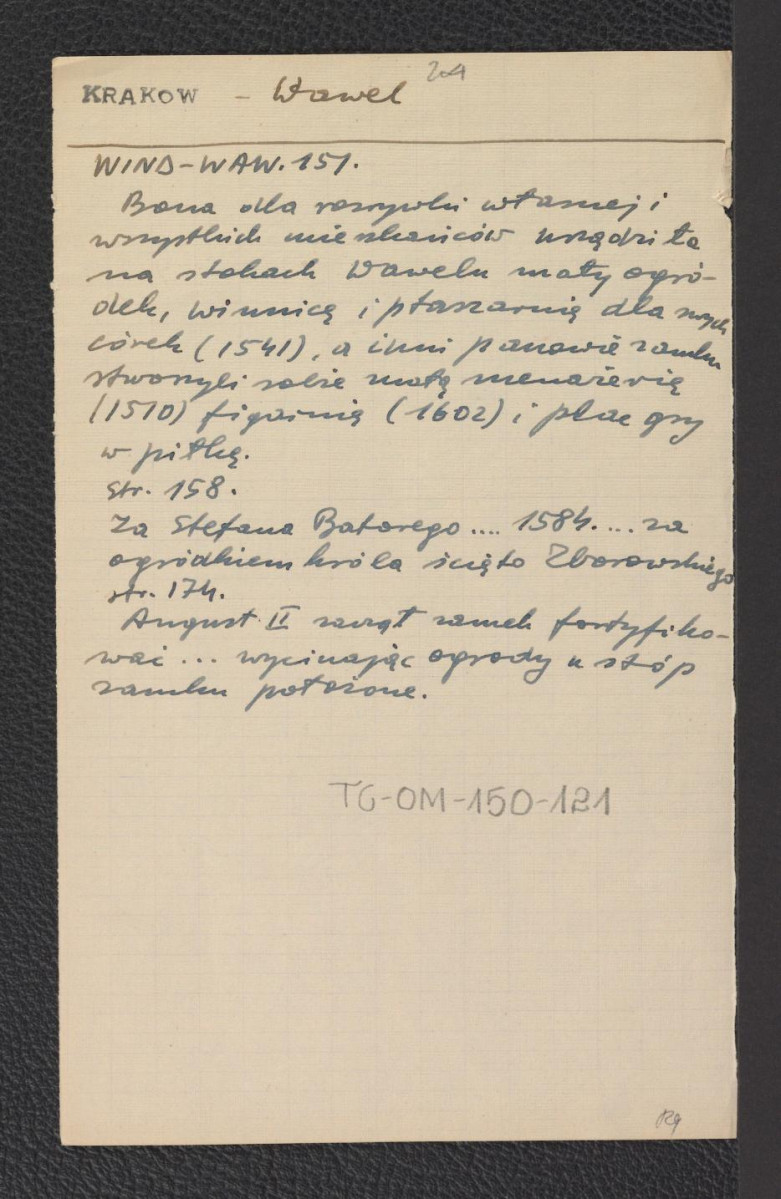 204
KRAKOW - Wawel
WIND-WAW. 151.
Bona dla rozrywki własnej i
wszystkich mieszkańców urządziła
na stokach Wawelu mały ogró-
dek, winnicę i ptaszarnię dla swych
córek (1541), a inni panowie zamku
stworzyli sobie małą menażerię
(1510) figarnię (1602) i plac gry
w piłkę.
str. 158.
Za Stefana Batorego .... 1584. ... za
ogródkiem króla ścięto Zborowskiego
str. 174.
August II zaczął zamek fortyfiko-
wać ... wycinając ogrody u stóp
zamku położone.
TG-OM-150-121